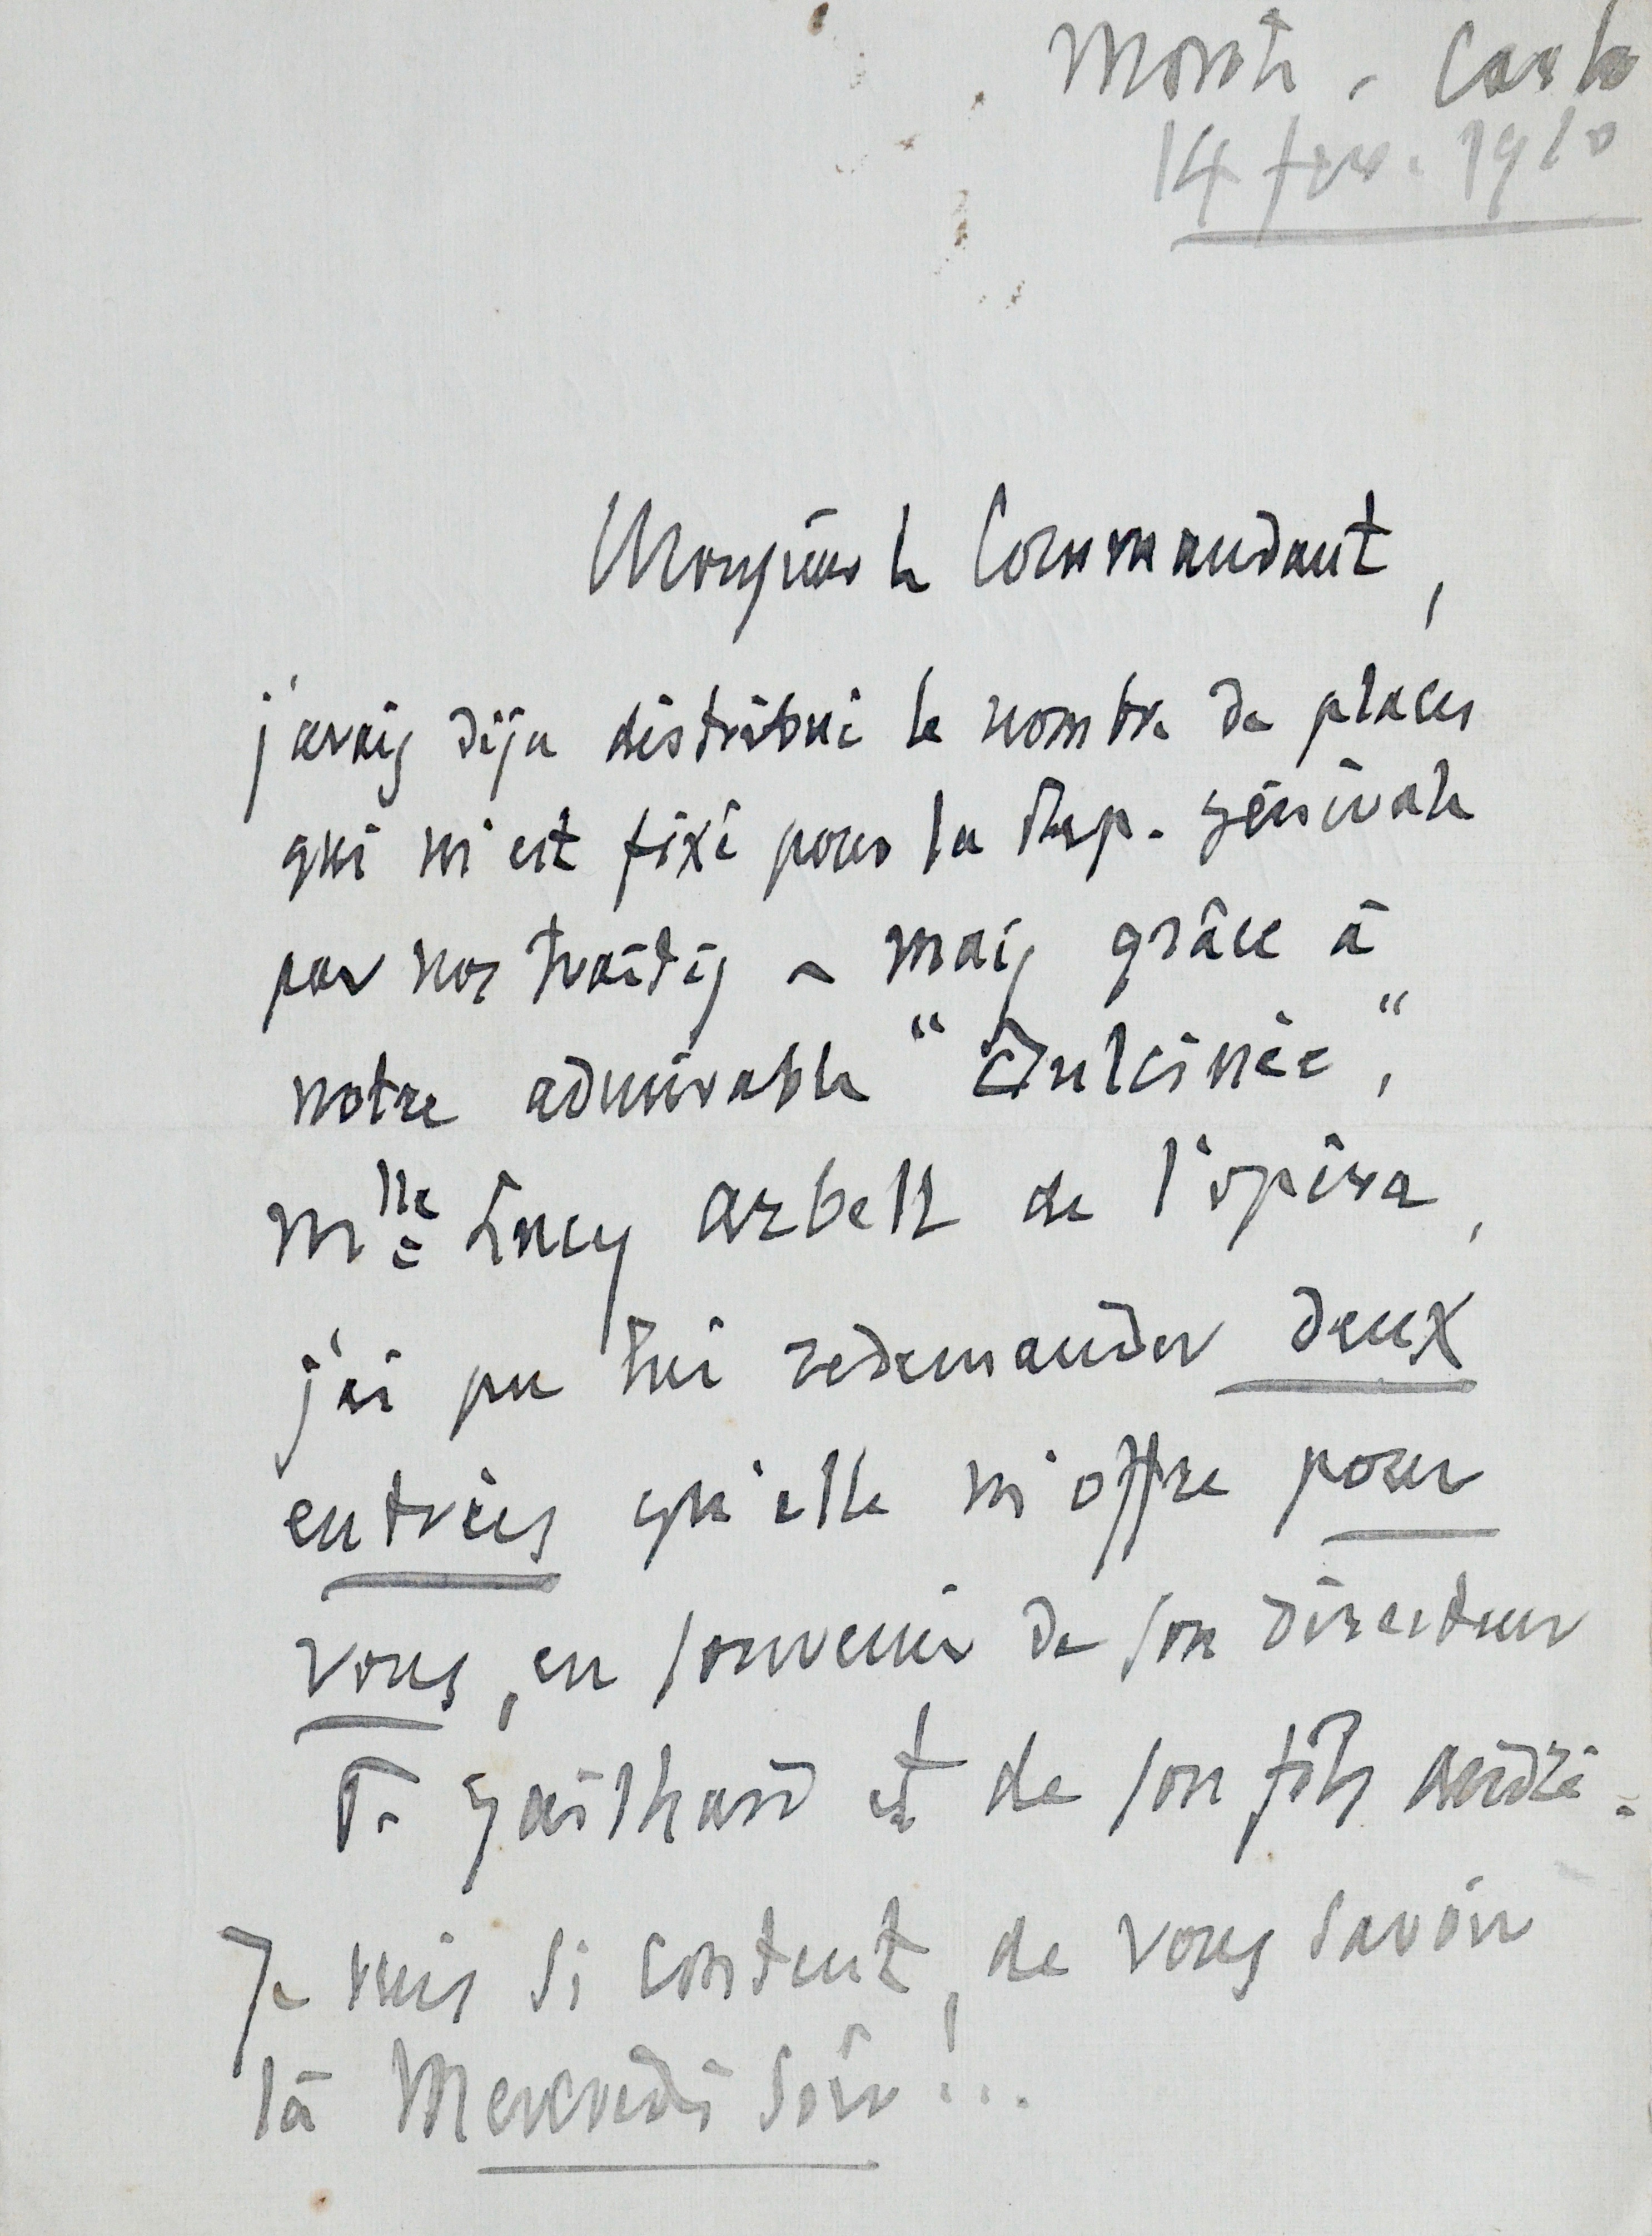 Monte-Carlo
14 fév. 1910
Monsieur le Commandant,
j'avais déjà distribué le nombre de places
qui m'est fixé pour la Rép. générale
par nos traités – mais grâce à
notre admirable "Dulcinée",
Mlle Lucy Arbell de l'opéra,
j'ai pu lui redemander deux
entrées qu'elle m'offre pour
vous, en souvenir de son directeur
P. Gailhard et de son fils André.
Je suis si content, de vous savoir
là Mercredi soir!...